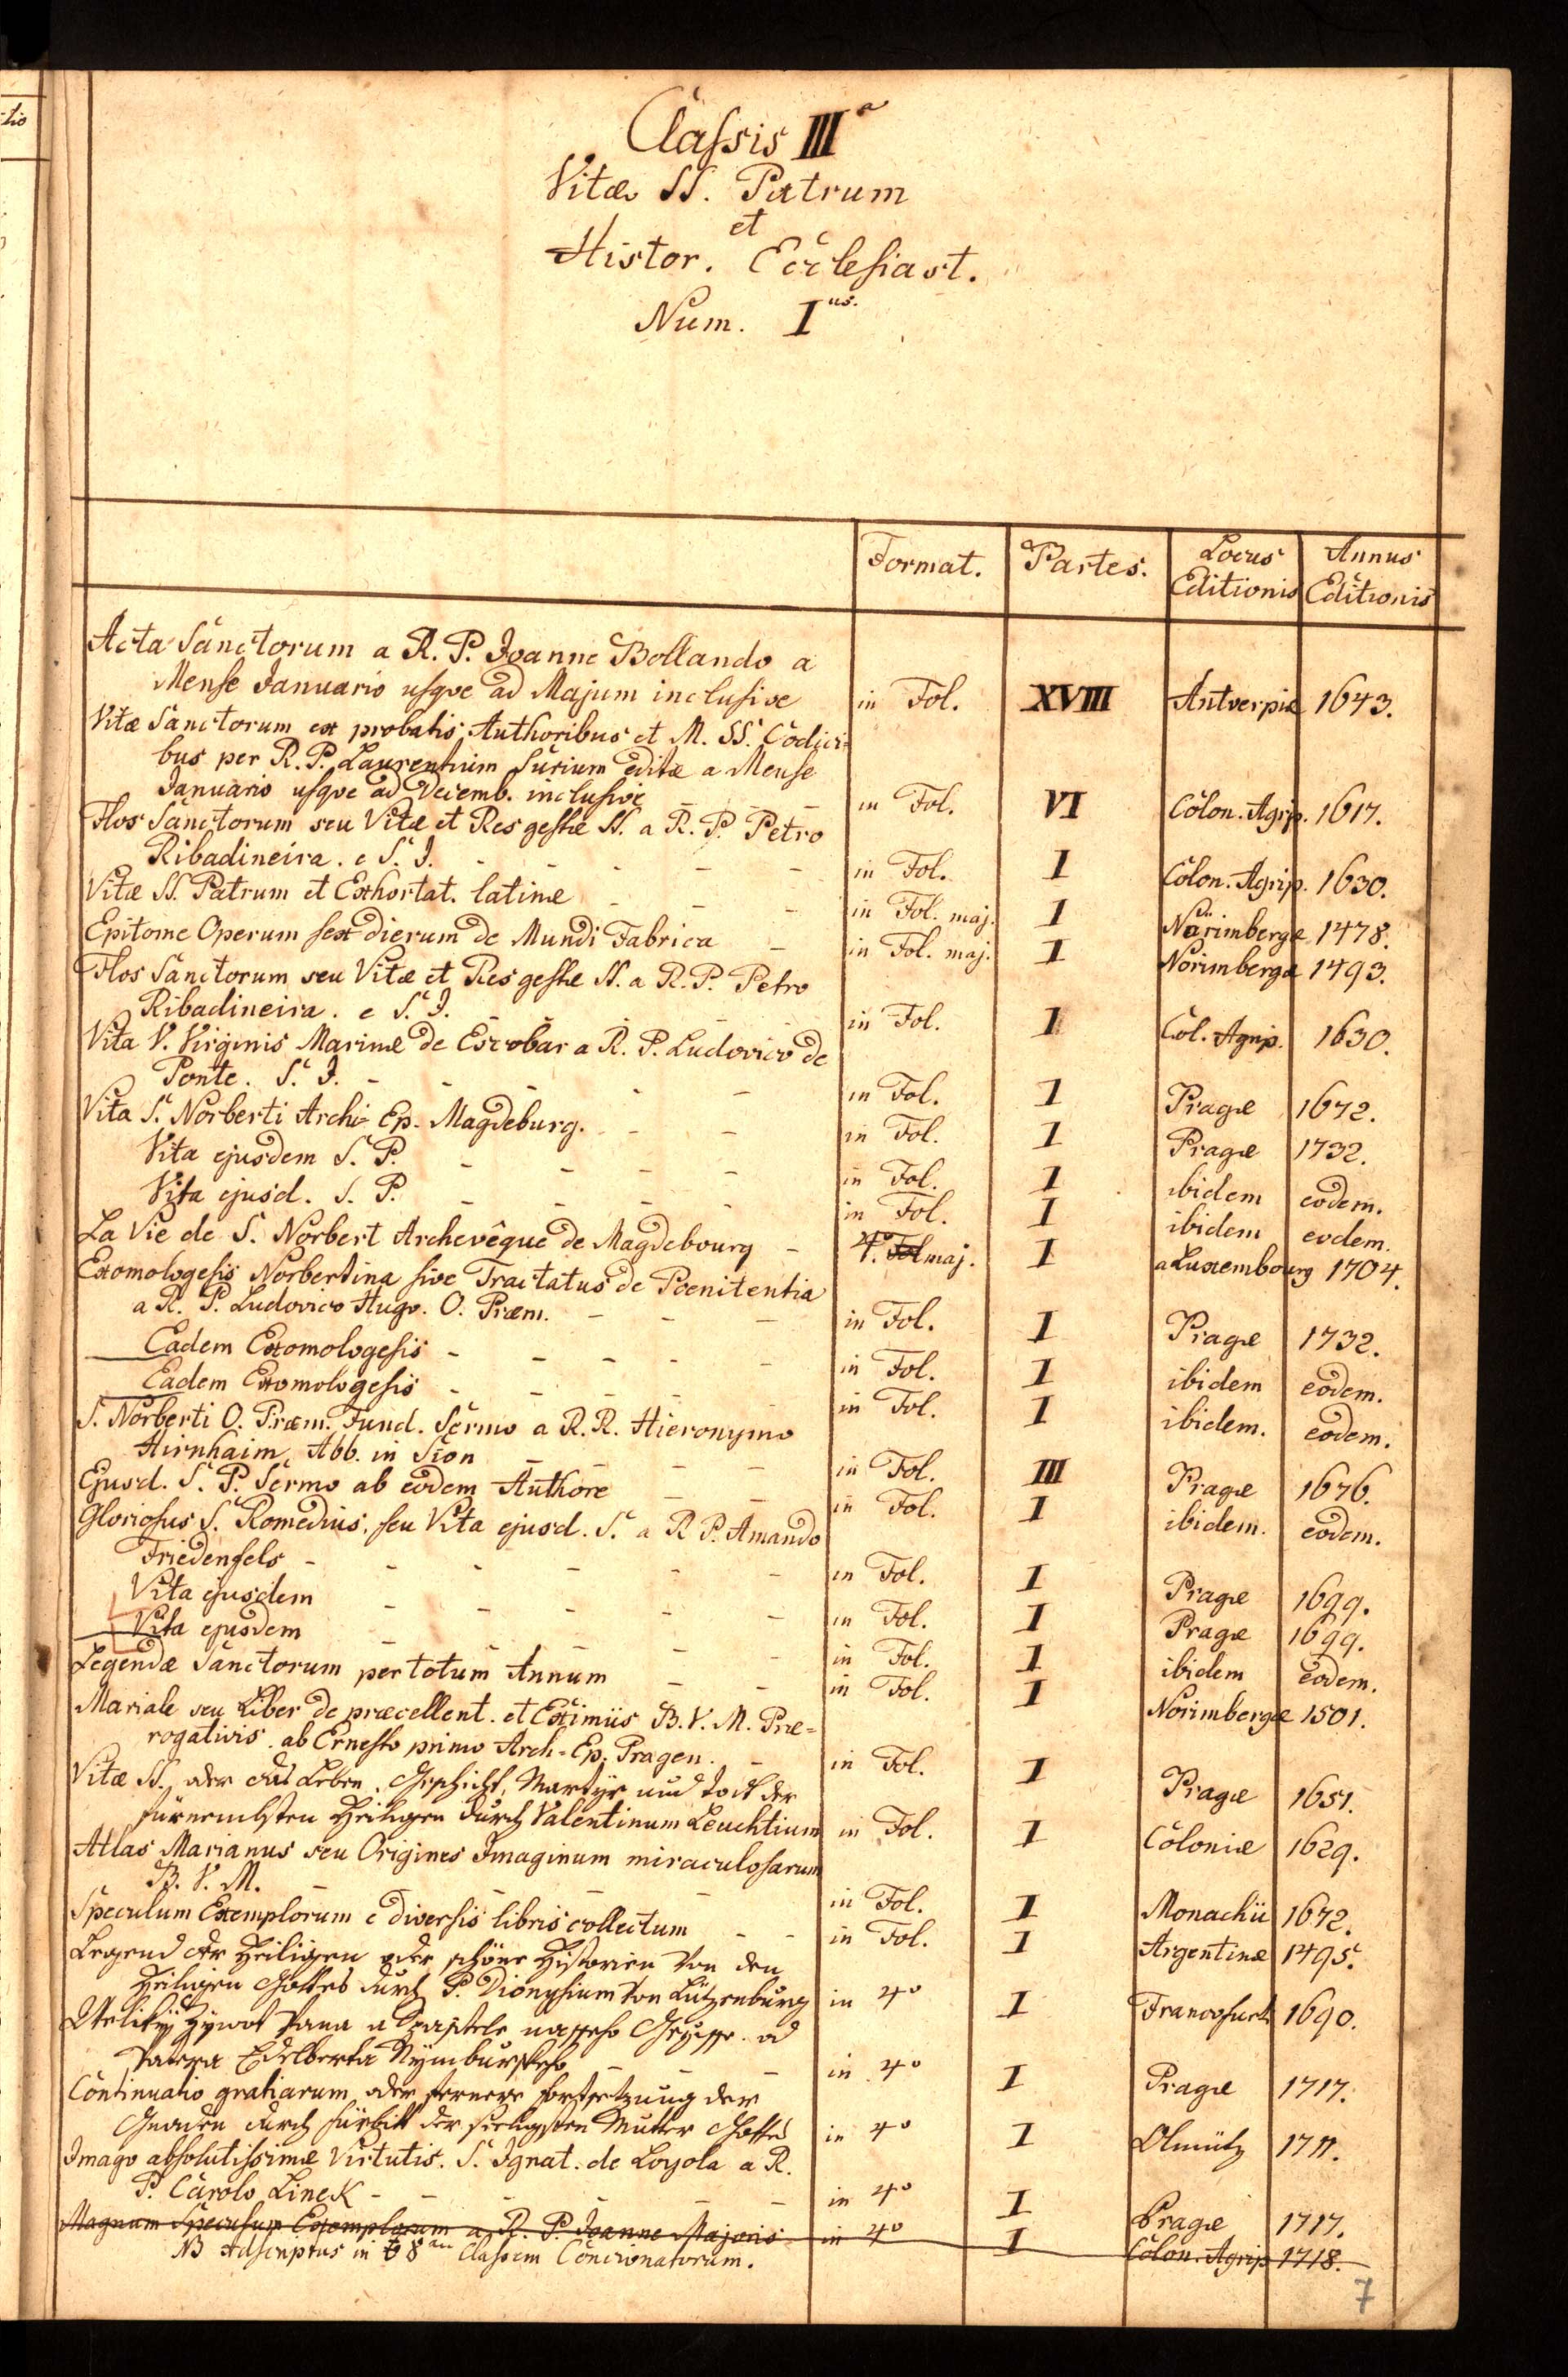 tio
Classis IIIa
Vitæ SS. Patrum
et
Histor. Ecclesiast.
Num. Ius.
Format. Partes. Locus Editionis Annus Editionis
Acta Sanctorum a R. P. Joanne Bollando a
Mense Januario usque ad Majum inclusive in Fol. XVIII Antverpiæ 1643.
Vitæ Sanctorum ex probatis Authoribus et M. SS. Codici=
bus per R. P. Laurentium Surium editæ a Mense
Januario usque ad Decemb. inclusive in Fol. VI Colon. Agrip. 1617.
Flos Sanctorum seu Vitæ et Res gestæ SS. a R. P. Petro
Ribadineira. e S. J. - - - - - in Fol. I Colon. Agrip. 1630.
Vitæ SS. Patrum et Exhortat. latinæ - - - in Fol. maj. I Nürimbergæ 1478.
Epitome Operum sex dierum de Mundi Fabrica - in Fol. maj. I Norimbergæ 1493.
Flos Sanctorum seu Vitæ et Res gestæ SS. a R. P. Petro
Ribadineira. e S. J. - - - - in Fol. I Col. Agrip. 1630.
Vita V. Virginis Marinæ de Escobar a R. P. Ludovico de
Ponte. S. J. - - - - - in Fol. I Pragæ 1672.
Vita S. Norberti Archi-Ep. Magdeburg. - - in Fol. I Pragæ 1732.
Vita ejusdem S. P. - - - - in Fol. I ibidem eodem.
Vita ejusd. S. P. - - - - in Fol. I ibidem eodem.
La Vie de S. Norbert Archevêque de Magdebourg - 4.° Fol maj. I a Luxembourg 1704.
Exomologesis Norbertina sive Tractatus de Poenitentia
a R. P. Ludovico Hugo. O. Præm. - - - in Fol. I Pragæ 1732.
Eadem Exomologesis - - - - - in Fol. I ibidem eodem.
Eadem Exomologesis - - - - in Fol. I ibidem. eodem.
S. Norberti O. Præm. Fund. Sermo a R. R. Hieronymo
Hirnhaim Abb. in Sion - - - - in Fol. III Pragæ 1676.
Ejusd. S. P. Sermo ab eodem Authore - - in Fol. I ibidem. eodem.
Gloriosus S. Romedius, seu Vita ejusd. S. a R P. Amando
Friedenfels - - - - - - in Fol. I Pragæ 1699.
Vita ejusdem - - - - - in Fol. I Pragæ 1699.
Vita ejusdem - - - - - in Fol. I ibidem eodem.
Legendæ Sanctorum per totum Annum - - in Fol. I Norimbergæ 1501.
Mariale seu Liber de præcellent. et Eximiis B. V. M. Præ=
rogativis. ab Ernesto primo Arch-Ep. Pragen. - in Fol. I Pragæ 1651.
Vitæ SS. oder das Leben, Geschicht, Martyr und Todt der
fürnembsten Heiligen durch Valentinum Leuchtium in Fol. I Coloniæ 1629.
Atlas Marianus seu Origines Imaginum miraculosarum
B. V. M. - - - - in Fol. I Monachii 1672.
Speculum Exemplorum e diversis libris collectum - - in Fol. I Argentinæ 1495.
Legend der Heiligen oder schöne Historien von den
Heiligen Gottes durch P. Dionysium von Lützenburg in 4° I Francofurti 1690.
Weliký Ziwot Pana a Spasitele nasseho Gezisse. od
Patera Edelberta Nymburskeho - - - in 4° I Pragæ 1717.
Continuatio gratiarum, oder fernere Fortsetzung der
Gnaden durch Fürbitt der seeligsten Mutter Gottes in 4° I Olmütz 1711.
Imago absolutissimæ Virtutis. S. Ignat. de Loyola a R.
P. Carolo Linek - - - - - - in 4° I Pragæ 1717.
Magnum Speculum Exemplorum a R. P. Joanne Majoris in 4° I Colon. Agrip 1718.
NB Adscriptus in 8am Classem Concionatorum.
7